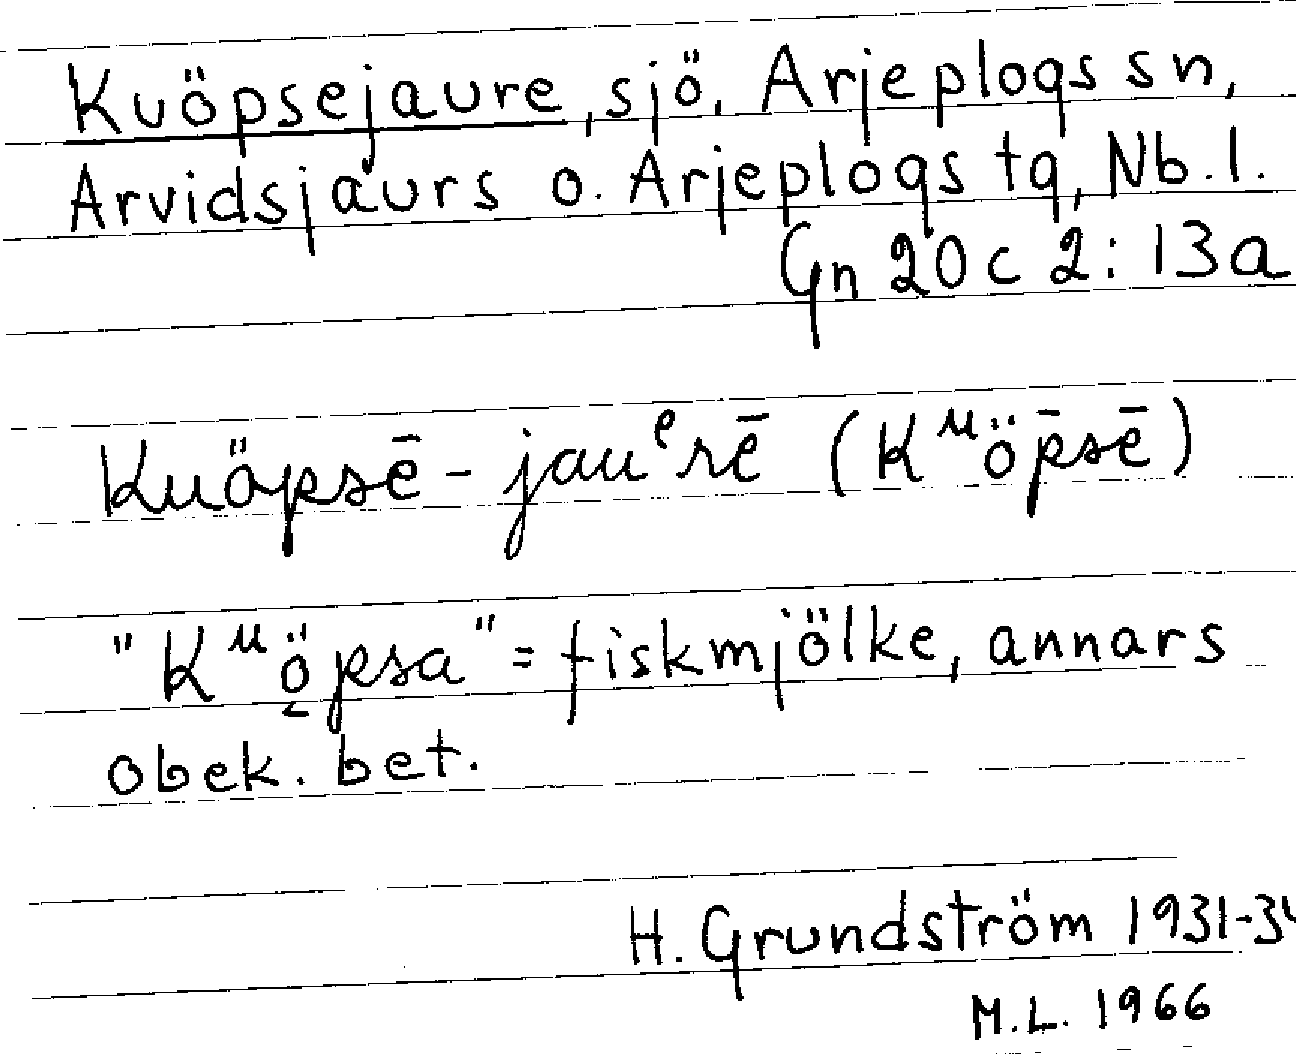 Kuöpsejaure, sjö, Arjeplogs sn,
Arvidsjaurs o. Arjeplogs tg, Nb. l.
Gn 20 c 2: 13a
Kuöpsē-jauᵉrē (Kᵘöp̄sē)
"Kᵘö̱psa" = fiskmjölke, annars
obek. bet.
H. Grundström 1931-34
M.L. 1966